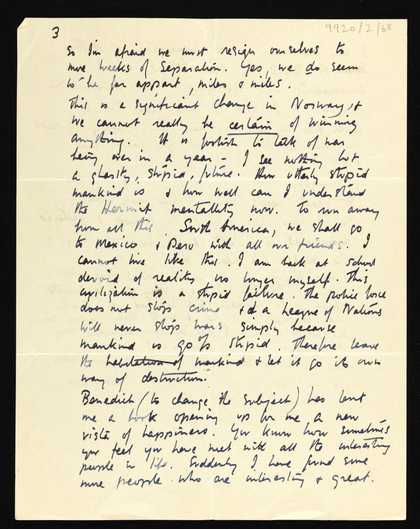 9920/2/58
3
so I'm afraid we must resign ourselves to
more weeks of separation. Yes, we do seem
to be far appart, miles & miles.
This is a significant change in Norway, &
we cannot really be certain of winning
anything. It is foolish to talk of war
being over in a year – I see nothing but
a ghastly, stupid, future. How utterly stupid
mankind is & how well can I understand
the Hermit mentality now. To run away
from all this. South America, we shall go
to Mexico & Peru with all our friends. I
cannot live like this. I am back at school
devoid of reality, no longer myself. This
civilization is a stupid failure. The police force
does not stop crime & a League of Nations
will never stop wars simply because
mankind is stupid. Therefore leave
the habitation of mankind & let it go its own
way of destruction.
Benedict (to change the subject) has lent
me a book opening up for me a new
vista of happiness. You know how sometimes
you feel you have met with all the interesting
people in life. Suddenly I have found some
more people who are interesting & great.